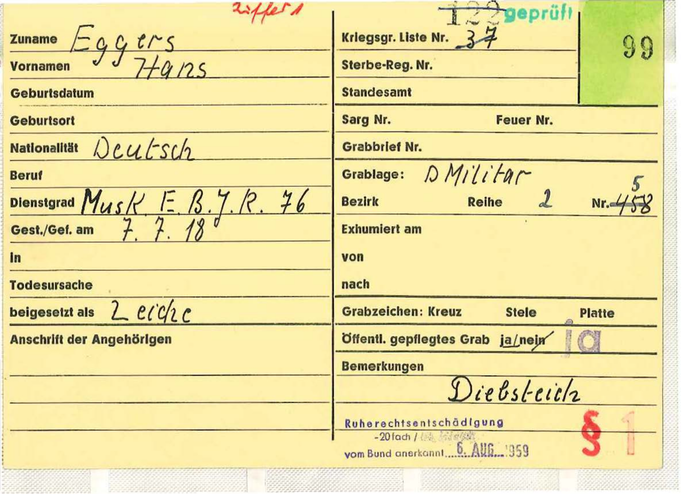 Ziffer 1
122 geprüft
99
Zuname Eggers
Vornamen Hans
Geburtsdatum
Geburtsort
Nationalität Deutsch
Beruf
Dienstgrad Musk. E. B. J. R. 76
Gest./Gef. am 7. 7. 18
In
Todesursache
beigesetzt als Leiche
Anschrift der Angehörigen
Kriegsgr. Liste Nr. 37
Sterbe-Reg. Nr.
Standesamt
Sarg Nr. Feuer Nr.
Grabbrief Nr.
Grablage: D Militär
Bezirk Reihe 2 Nr. 458 5
Exhumiert am
von
nach
Grabzeichen: Kreuz Stele Platte
Öffentl. gepflegtes Grab ja/nein ja
Bemerkungen
Diebsteich
Ruherechtsentschädigung
-20fach /
vom Bund anerkannt 6. AUG. 1959
§ 1